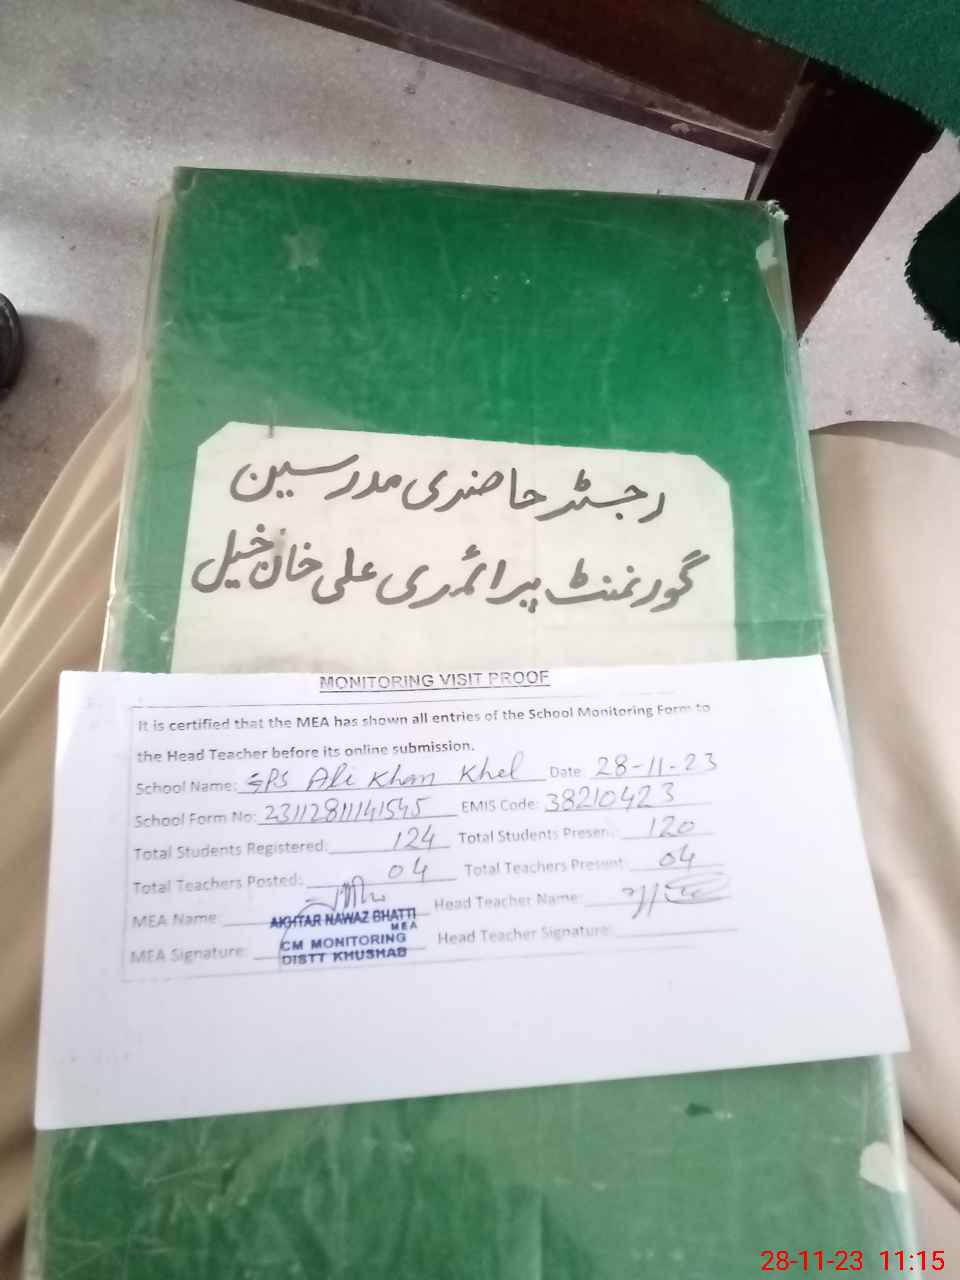 رجسٹر حاضری مدرسین
گورنمنٹ پرائمری علی خان خیل
MONITORING VISIT PROOF
It is certified that the MEA has shown all entries of the School Monitoring Form to
the Head Teacher before its online submission.
School Name: GPS Ali Khan Khel Date: 28-11-23
School Form No: 23112811141545 EMIS Code: 38210423
Total Students Registered: 124 Total Students Present: 120
Total Teachers Posted: 04 Total Teachers Present: 04
MEA Name: AKHTAR NAWAZ BHATTI Head Teacher Name:
MEA
MEA Signature: CM MONITORING Head Teacher Signature:
DISTT KHUSHAB
28-11-23 11:15